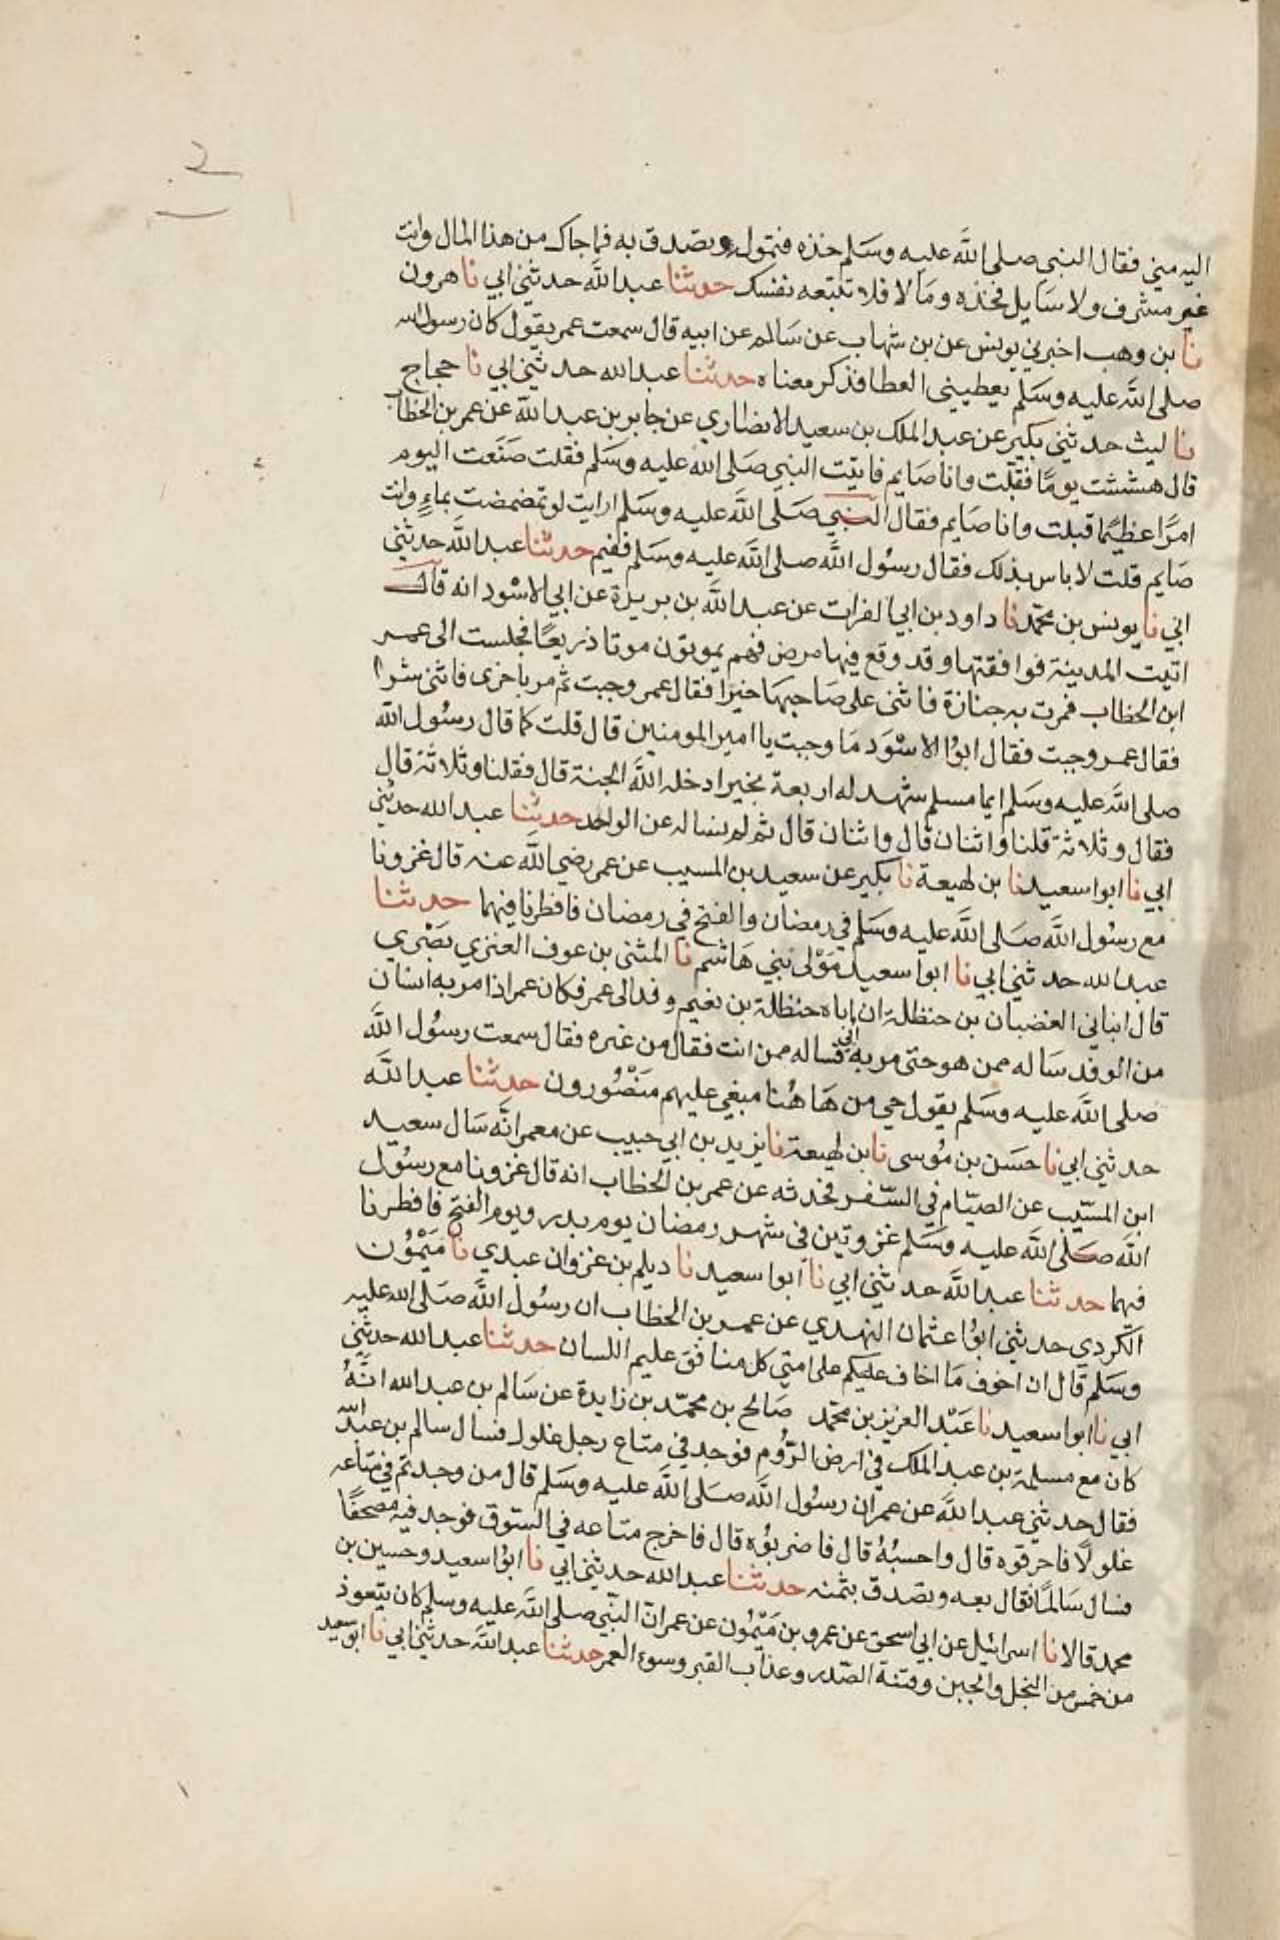 اليه مني فقال النبي صلى الله عليه وسلم خذه فتموله وتصدق به فما جاك من هذا المال وانت
غير مشرف ولا سايل فخذه وما لا فلا تتبعه نفسك حدثنا عبد الله حدثني ابي نا هرون
نا بن وهب اخبرني يونس عن بن شهاب عن سالم عن ابيه قال سمعت عمر يقول كان رسول الله
صلى الله عليه وسلم يعطيني العطا فذكر معناه حدثنا عبد الله حدثني ابي نا حجاج
نا ليث حدثني بكير عن عبد الملك بن سعيد الانصاري عن جابر بن عبد الله عن عمر بن الخطاب
قال هششت يوما فقبلت وانا صايم فاتيت النبي صلى الله عليه وسلم فقلت صنعت اليوم
امرا عظيما قبلت وانا صايم فقال النبي صلى الله عليه وسلم ارايت لو تمضمضت بماء وانت
صايم قلت لا باس بذلك فقال رسول الله صلى الله عليه وسلم ففيم حدثنا عبد الله حدثني
ابي نا يونس بن محمد نا داود بن ابي الفرات عن عبد الله بن بريدة عن ابي الاسود انه قال
اتيت المدينة فوافقتها وقد وقع فيها مرض فهم يموتون موتا ذريعا فجلست الى عمر
ابن الخطاب فمرت به جنازة فاثنى على صاحبها خيرا فقال عمر وجبت ثم مر باخرى فاثنى شرا
فقال عمر وجبت فقال ابوا الاسود ما وجبت يا امير المومنين قال قلت كما قال رسول الله
صلى الله عليه وسلم ايما مسلم شهد له اربعة بخير ادخله الله الجنة قال فقلنا وثلاثة قال
فقال وثلاثة قلنا واثنان قال واثنان قال ثم لم نساله عن الواحد حدثنا عبد الله حدثني
ابي نا ابوا سعيد نا بن لهيعة نا بكير عن سعيد بن المسيب عن عمر رضي الله عنه قال غزونا
مع رسول الله صلى الله عليه وسلم في رمضان والفتح في رمضان فافطرنا فيهما حدثنا
عبد الله حدثني ابي نا ابوا سعيد مولى بني هاشم نا المثنى بن عوف العنزي بصري
قال انباني الغضبان بن حنظلة ان اباه حنظلة بن نعيم وفد الى عمر فكان عمر اذا مر به انسان
من الوفد ساله ممن هو حتى مر به ابي فساله ممن انت فقال من عنزه فقال سمعت رسول الله
صلى الله عليه وسلم يقول حي من هاهنا مبغي عليهم منصورون حدثنا عبد الله
حدثني ابي نا حسن بن موسى نا ابن لهيعة نا يزيد بن ابي حبيب عن معمر انه سال سعيد
ابن المسيب عن الصيام في السفر فحدثه عن عمر بن الخطاب انه قال غزونا مع رسول
الله صلى الله عليه وسلم غزوتين في شهر رمضان يوم بدر ويوم الفتح فافطرنا
فيهما حدثنا عبد الله حدثني ابي نا ابوا سعيد نا ديلم بن غزوان عبدي نا ميمون
الكردي حدثني ابوا عثمان النهدي عن عمر بن الخطاب ان رسول الله صلى الله عليه
وسلم قال ان اخوف ما اخاف عليكم على امتي كل منافق عليم اللسان حدثنا عبد الله حدثني
ابي نا ابوا سعيد نا عبد العزيز بن محمد صالح بن محمد بن زايدة عن سالم بن عبد الله انه
كان مع مسلمة بن عبد الملك في ارض الروم فوجد في متاع رجل غلول فسال سالم بن عبد الله
فقال حدثني عبد الله عن عمر ان رسول الله صلى الله عليه وسلم قال من وجدتم في متاعه
غلولا فاحرقوه قال واحسبه قال فاضربوه قال فاخرج متاعه في السوق فوجد فيه مصحفا
فسال سالما فقال بعه وتصدق بثمنه حدثنا عبد الله حدثني ابي نا ابوا سعيد وحسين بن
محمد قالا نا اسرائيل عن ابي اسحق عن عمرو بن ميمون عن عمر ان النبي صلى الله عليه وسلم كان يتعوذ
من خمس من البخل والجبن وفتنة الصدر وعذاب القبر وسوء العمر حدثنا عبد الله حدثني ابي نا ابو سعيد